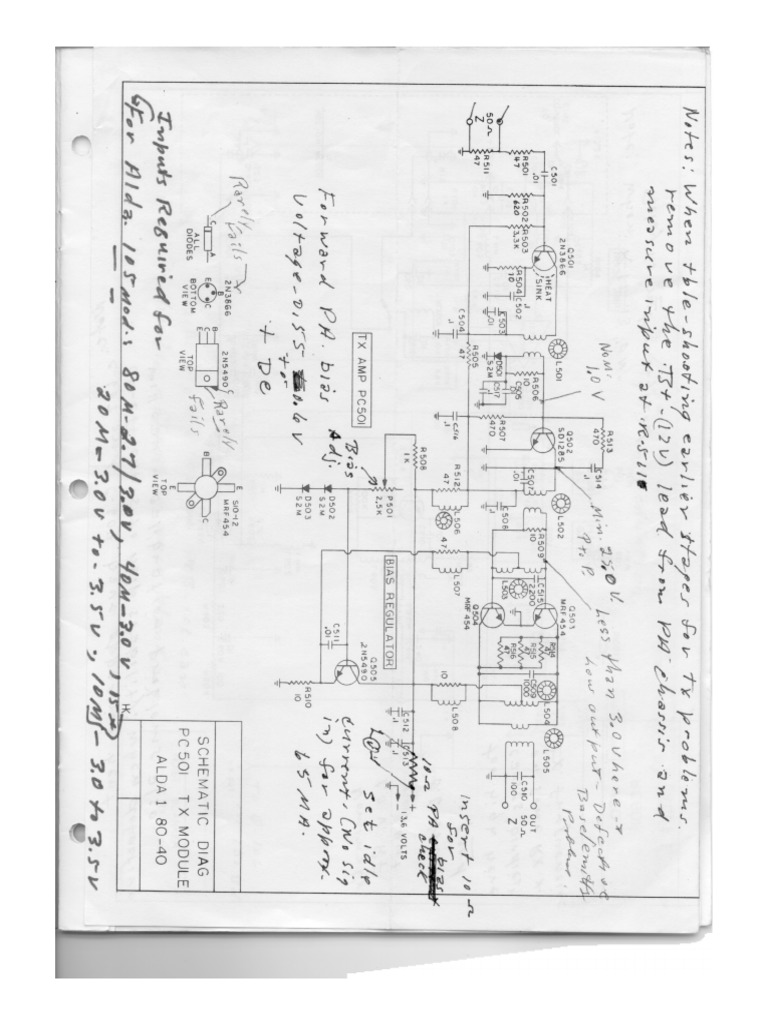 Notes: When tble-shooting earlier stages for tx problems.
remove the 13+ (12v) lead from PA chassis and
measure input at R-511
50Ω
Z
R511
47
R501
47
C501
.01
R502
620
R503
3.3K
Q501
2N3866
HEAT
SINK
R504
10
C502
.1
C503
.01
C504
.1
R505
47
L501
D501
S2M
C517
C505
R506
10
Nom:
1.0 V
C516
.1
R507
470
Q502
SD1285
R513
470
C514
.1
R508
1K
R512
47
L506
C507
.01
C508
.1
L502
R509
10
C515
2,200
L503
47
L507
Min. 25.0 V.
P to P.
Less than 3.0v here →
low output - Defect
Base/emitter
Problem.
Q504
MRF454
Q503
MRF454
R514
47
R515
47
R516
47
C509
1000
L504
L505
10
L508
C510
100
OUT
50Ω
Z
TX AMP PC501
Bias
Adj.
R501
2.5K
D502
S2M
D503
S2M
BIAS REGULATOR
C511
.01
Q505
2N5490
R510
10
C512
.1
C513
.1
+
13.6 VOLTS
10Ω
insert 10Ω
for
PA bias
check
Forward P.A. bias
voltage - 0.55 to 0.6 V
+ De
Low set idle
current, (No sig
in) for approx.
65 MA.
Rarely
fails
C
A
ALL
DIODES
2N3866
E
B
C
BOTTOM
VIEW
2N5490
B
C
E
TOP
VIEW
Rarely
fails
S10-12
MRF454
B
E
E
C
TOP
VIEW
Inputs Required for
For Alda 105 Mod's 80M-2.7/3.0V, 40M-3.0V, 15M
20M-3.0V to-3.5V, 10M-3.0 to 3.5-V
HK
SCHEMATIC DIAG
PC501 TX MODULE
ALDA1 80-40